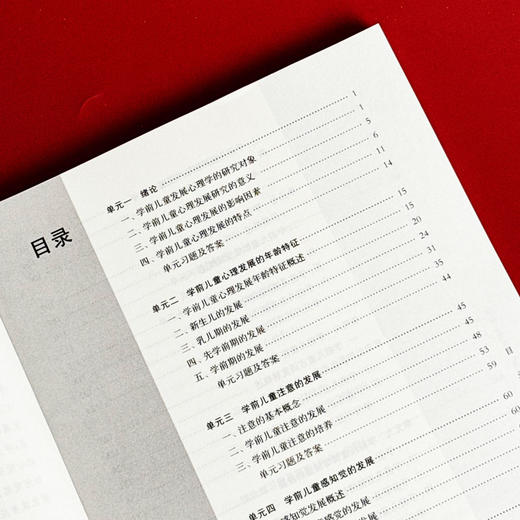 目录
单元一 绪论 1
一、学前儿童发展心理学的研究对象 1
二、学前儿童心理发展研究的意义 5
三、学前儿童心理发展的影响因素 6
四、学前儿童心理发展的特点 11
单元习题及答案 14
单元二 学前儿童心理发展的年龄特征 15
一、学前儿童心理发展年龄特征概述 15
二、新生儿的发展 20
三、乳儿期的发展 24
四、先学前期的发展 31
五、学前期的发展 35
单元习题及答案 44
单元三 学前儿童注意的发展 45
一、注意的基本概念 45
二、学前儿童注意的发展 48
三、学前儿童注意的培养 53
单元习题及答案 59
单元四 学前儿童感知觉的发展 60
感知觉发展概述 60
感觉的发展
目